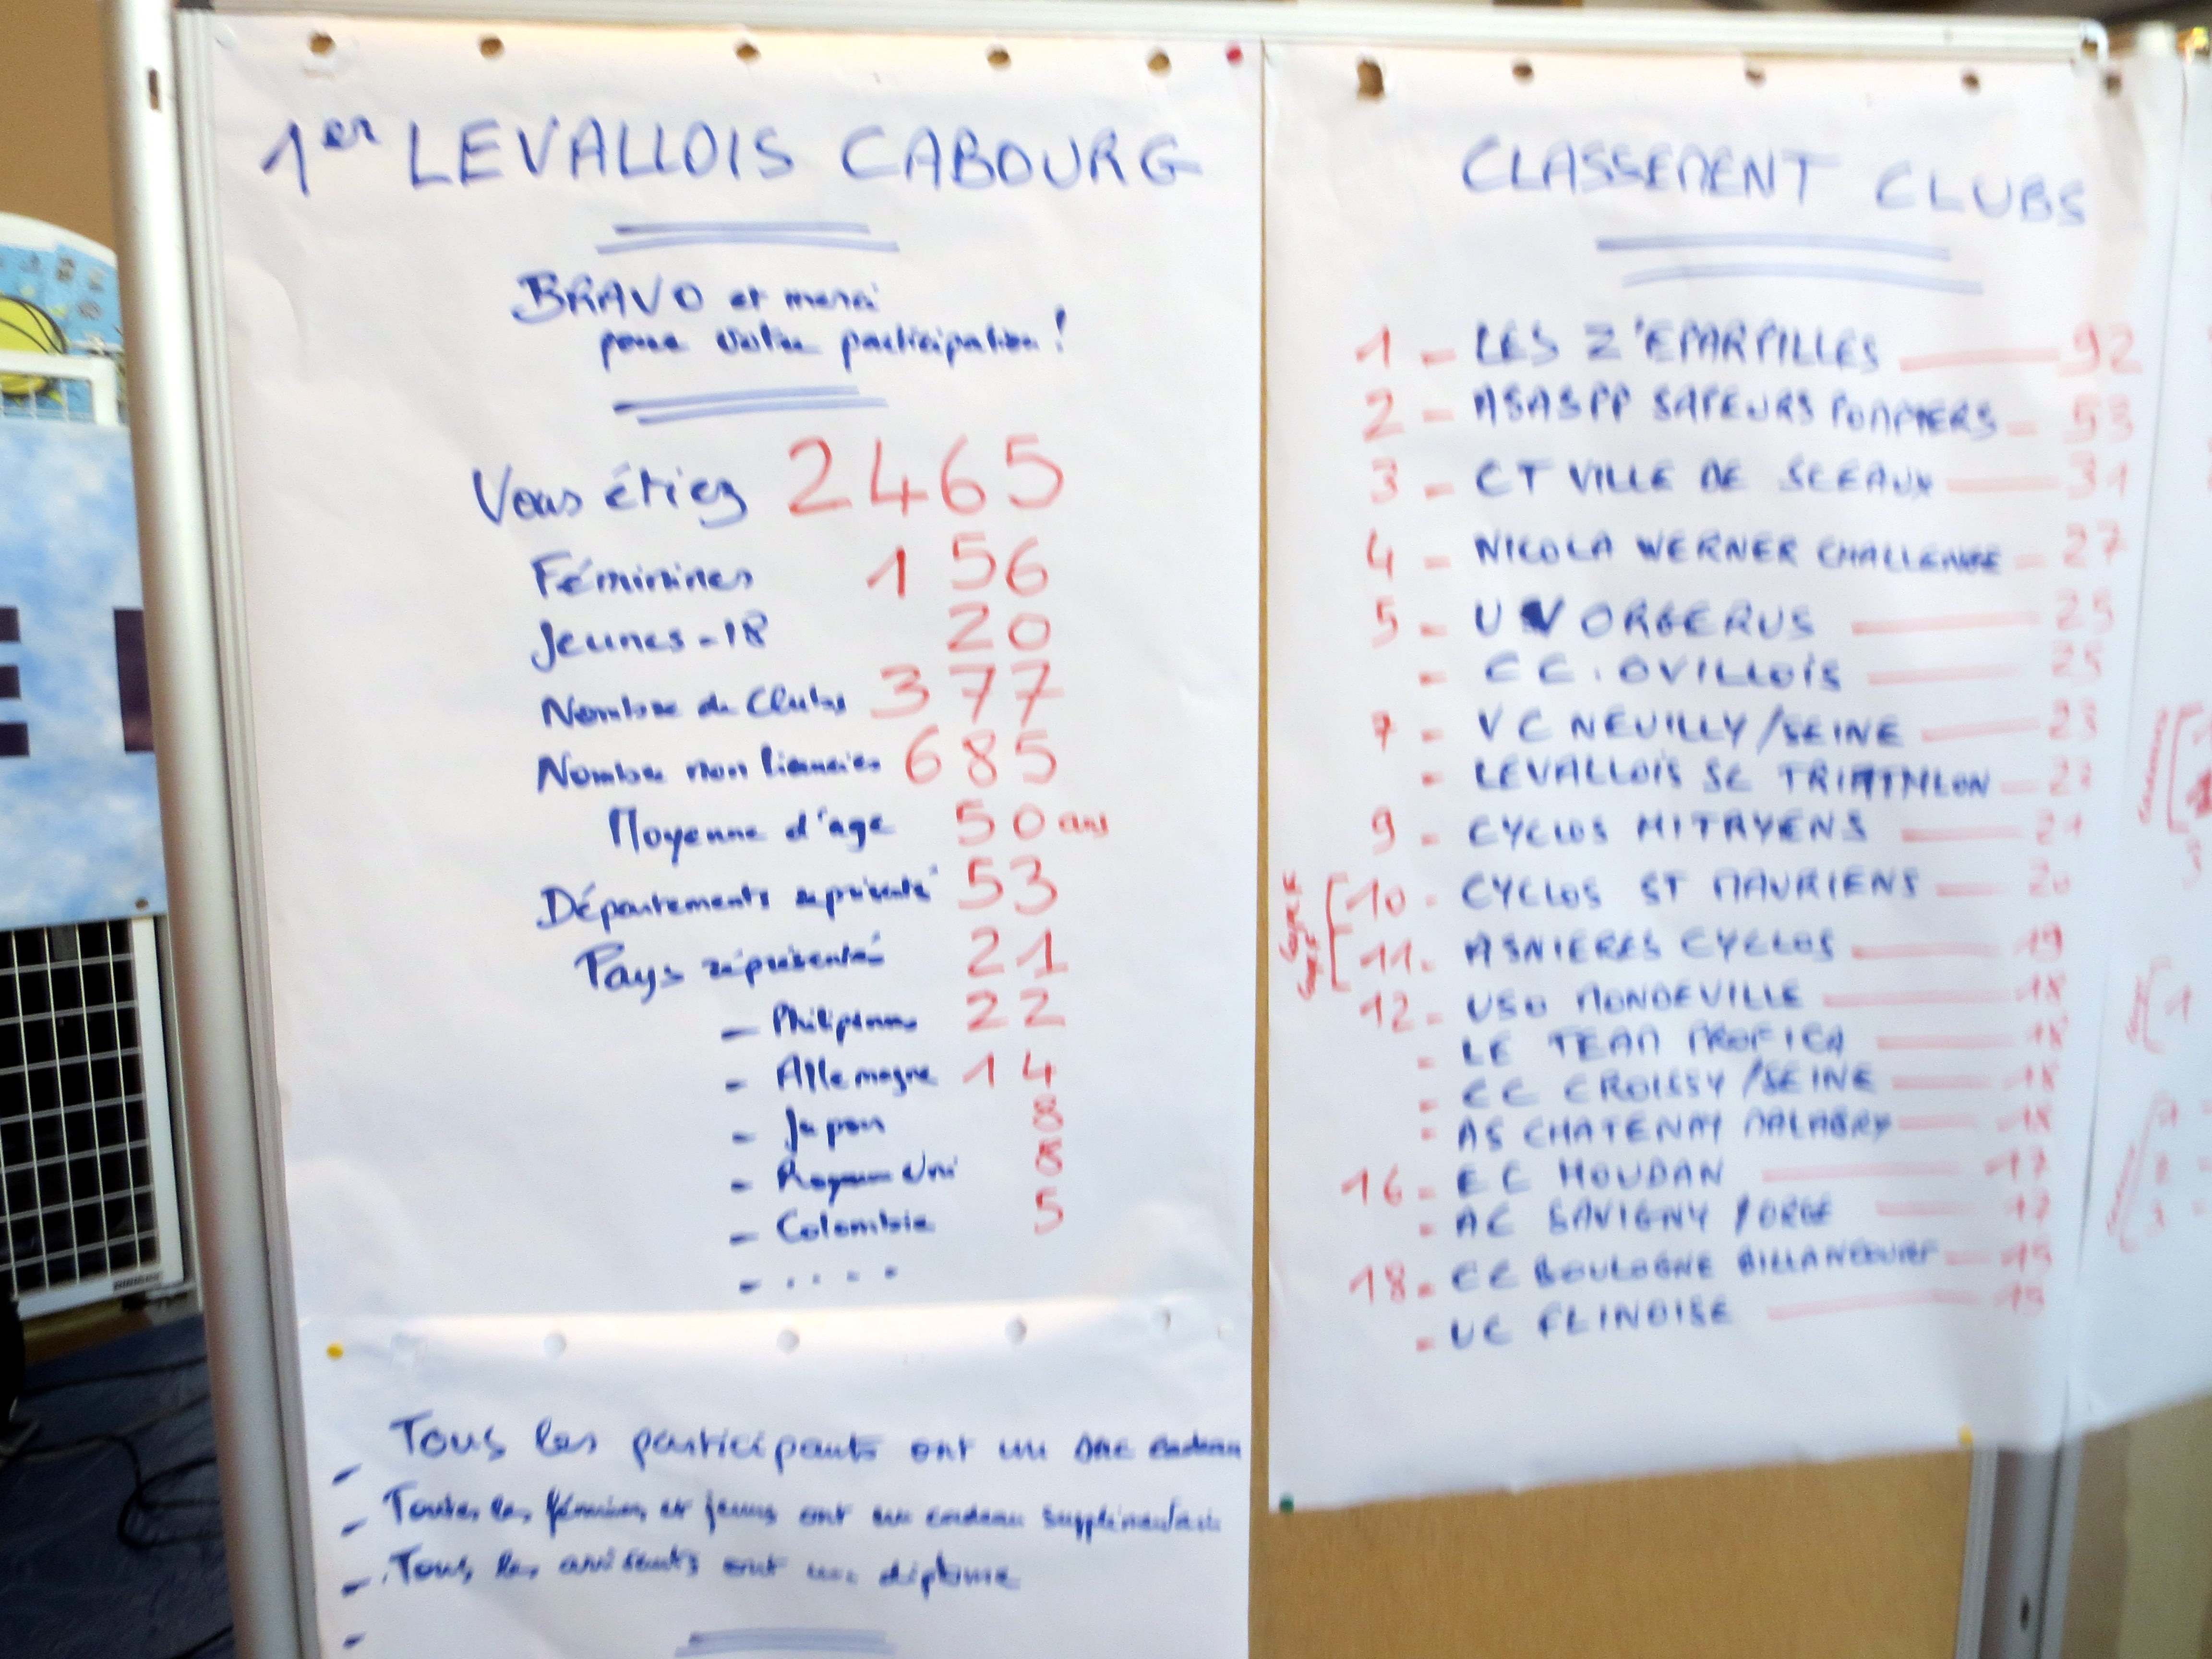 1er LEVALLOIS CABOURG
BRAVO et merci
pour votre participation !
Vous étiez 2465
Féminines 156
Jeunes -18 20
Nombre de Clubs 377
Nombre non licenciés 685
Moyenne d'age 50 ans
Départements représenté 53
Pays représenté 21
- Philippines 22
- Allemagne 14
- Japon 8
- Royaume Uni 8
- Colombie 5
- ....
- Tous les participants ont un sac cadeau
- Toutes les féminines et jeunes ont un cadeau supplémentaire
- Tous les arrivants ont un diplome
-
CLASSEMENT CLUBS
1 - LES Z'EPARPILLES 92
2 - ASASPP SAPEURS POMPIERS - 53
3 - CT VILLE DE SCEAUX 31
4 - NICOLA WERNER CHALLENGE - 27
5 - UV ORGERUS 25
- CC. OVILLOIS 25
7 - VC NEUILLY/SEINE 23
- LEVALLOIS SC TRIATHLON - 23
9 - CYCLOS MITRYENS 21
10 - CYCLOS ST MAURIENS 20
11 - ASNIERES CYCLOS 19
12 - USO MONDEVILLE 18
- LE TEAM PROFICA 18
- CC CROISSY/SEINE 18
- AS CHATENAY MALABRY 18
16 - EC HOUDAN 17
- AC SAVIGNY/ORGE 17
18 - CC BOULOGNE BILLANCOURT - 15
- UC FLINOISE 15